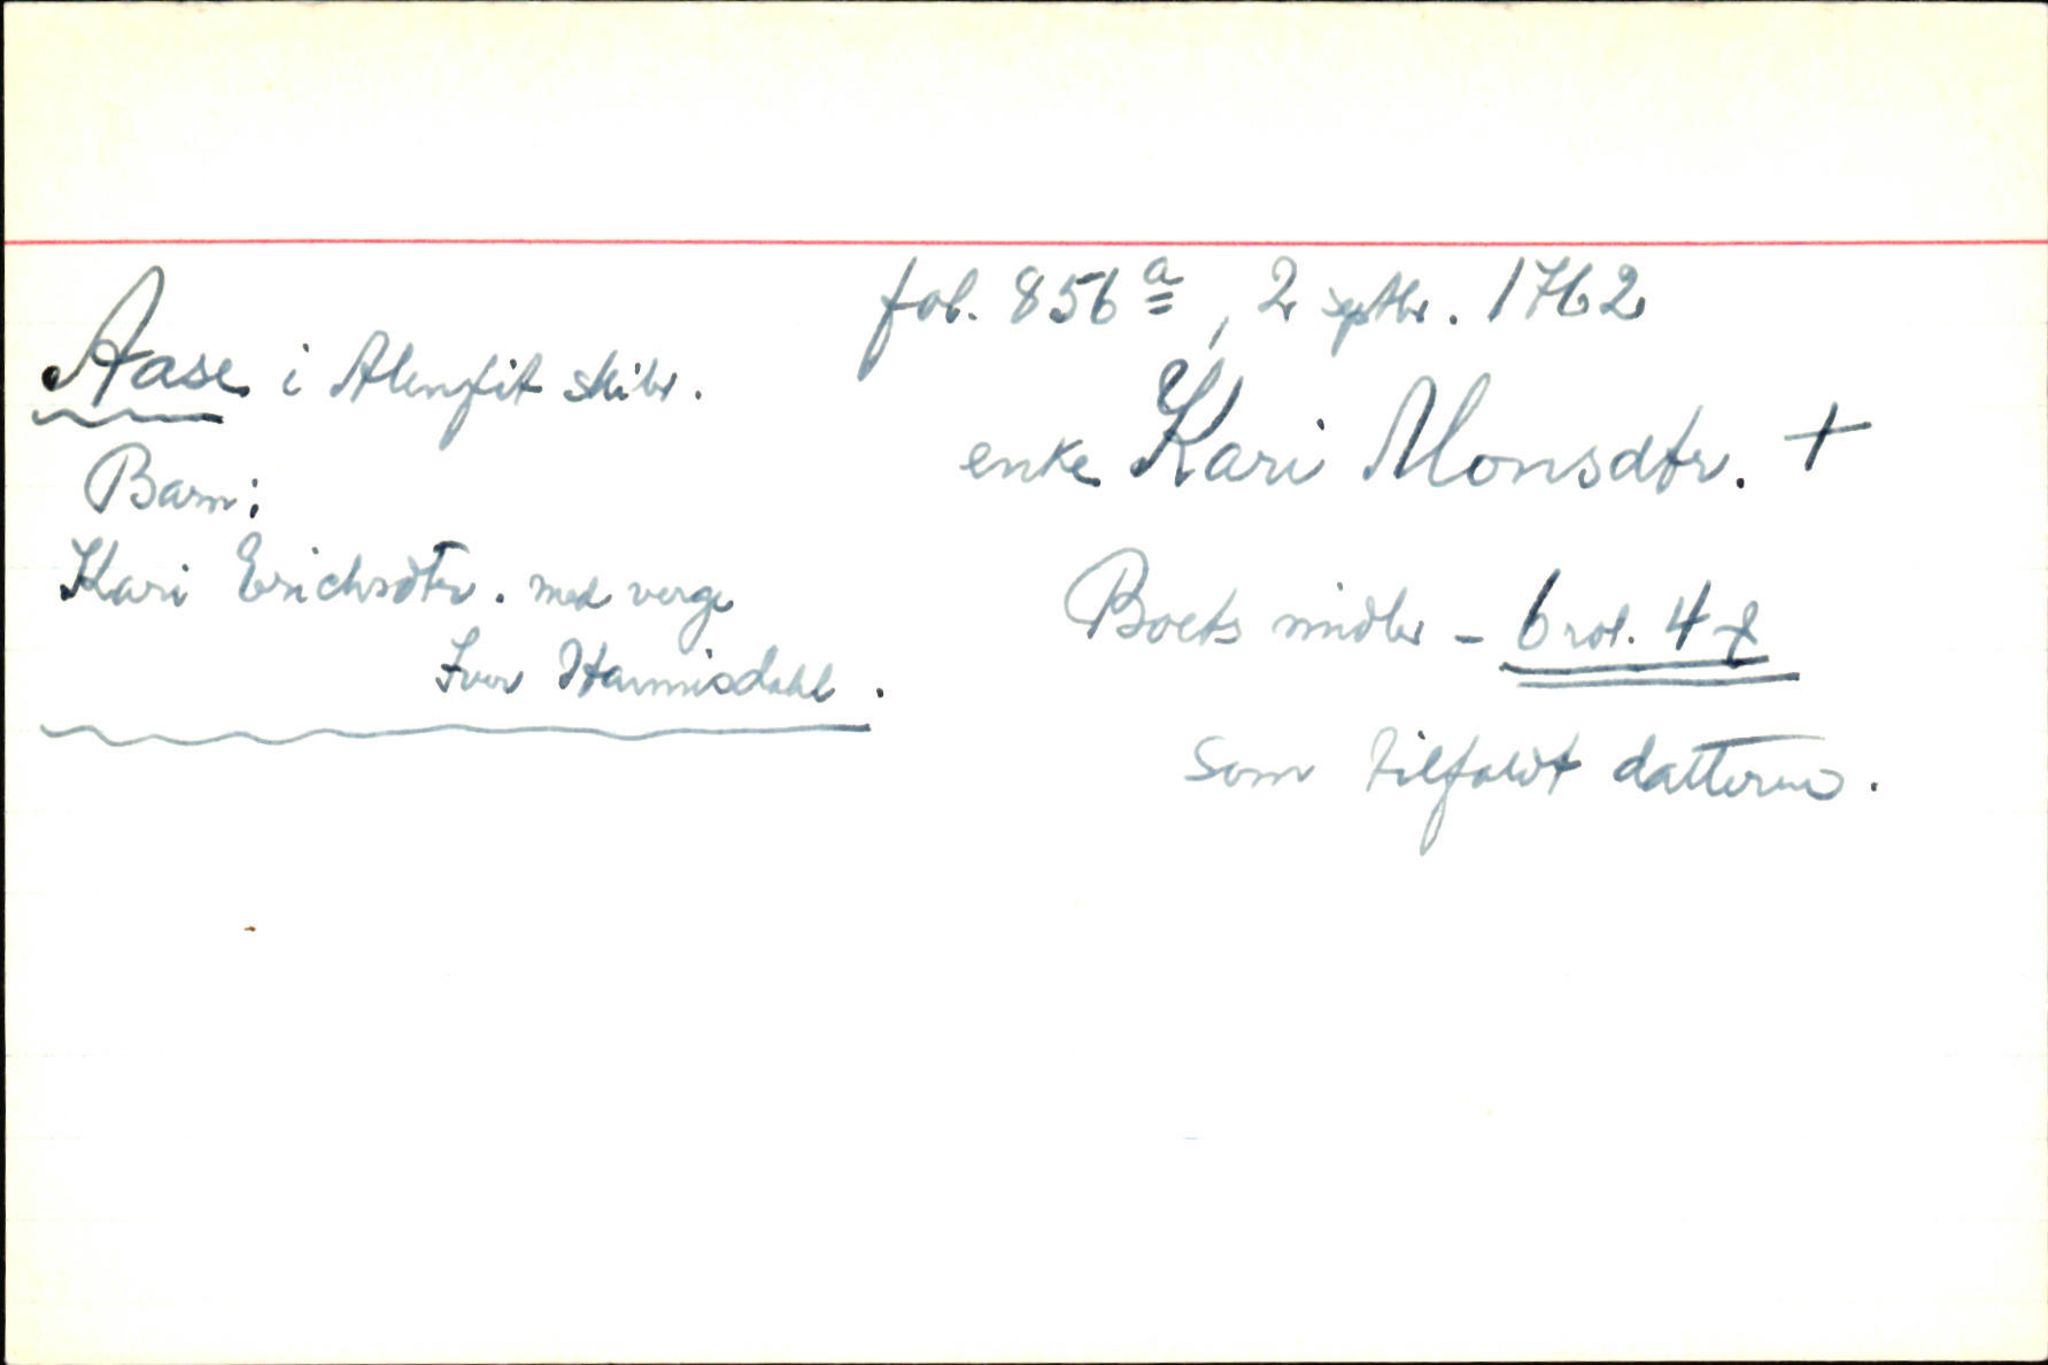 fol. 856 a, 2 septbr. 1762
Aase i Alenfit skibr.
enke Kari Monsdtr. +
Barn:
Kari Erichsdtr. med verge
Iver Hamnisdahl.
Boets midler - 6 rdl. 4 β
som tilfaldt datteren.